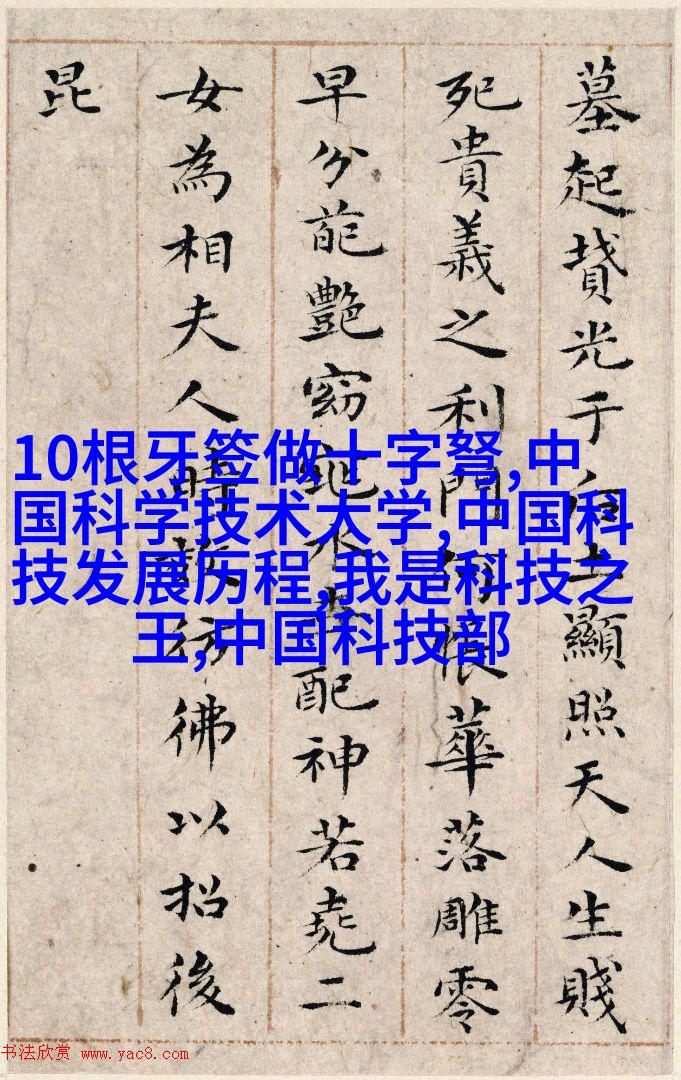 墓起墳光于后土顯照天人生賤
死貴義之利門何悵華落雕零
早分葩艷窈窕永世配神若堯二
女為相夫人時效彷彿以招後
昆
10根牙签做十字弩,中
国科学技术大学,中国科
技发展历程,我是科技之
王,中国科技部
书法欣赏 www.yac8.com